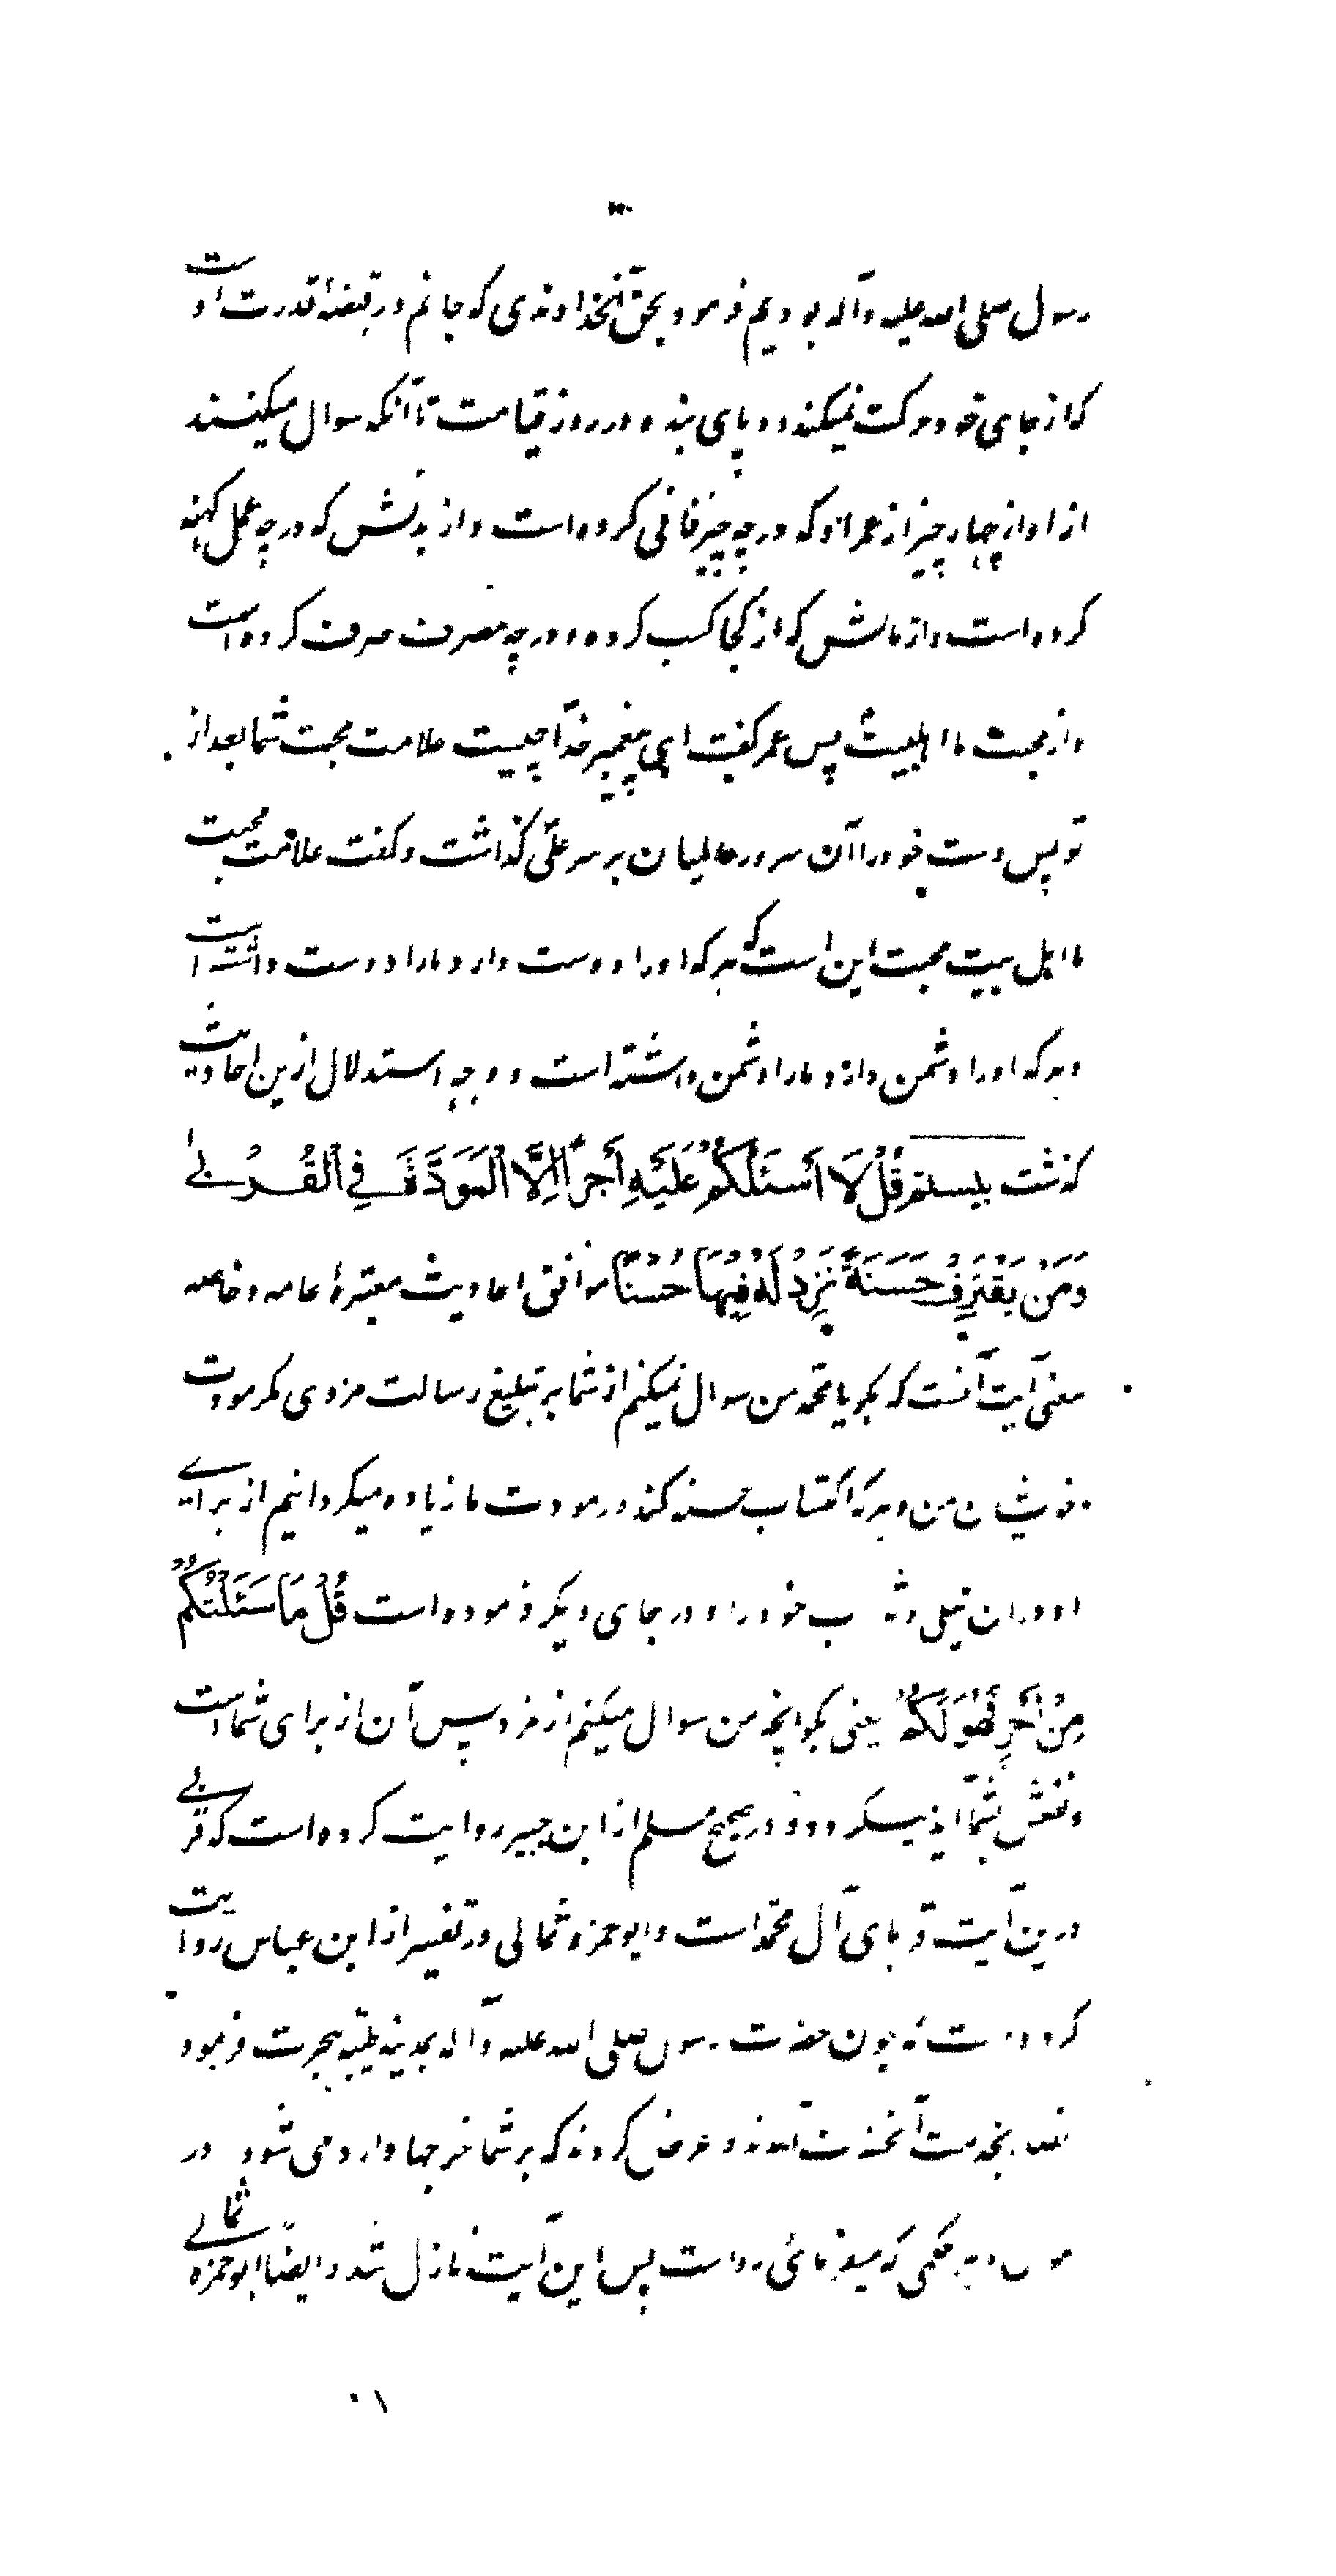 رسول صلی الله علیه وآله بودیم فرمود بحق آنخداوندی که جانم در قبضهٔ قدرت اوست
که از جای خود حرکت نمیکند دو پای بنده در روز قیامت تا آنکه سوال میکنند
از او از چهار چیز از عمر او که در چه چیز فانی کرده است و از بدنش که در چه عمل کهنه
کرده است و از مالش که از کجا کسب کرده و در چه مصرف صرف کرده است
و از محبت ما اهلبیت پس عمر گفت ای پیغمبر خدا چیست علامت محبت شما بعد از
تو پس دست خود را آن سرور عالمیان بر سر علی گذاشت و گفت علامت محبت
ما اهل بیت محبت این است که هر که او را دوست دارد ما را دوست داشته است
و هر که او را دشمن دارد ما را دشمن داشته است و وجه استدلال ازین احادیث
گذشت بیستم قُلْ لَا أَسْئَلُكُمْ عَلَيْهِ أَجْرًا إِلَّا الْمَوَدَّةَ فِي الْقُرْبىٰ
وَمَنْ يَقْتَرِفْ حَسَنَةً نَزِدْ لَهُ فِيهَا حُسْنًا موافق احادیث معتبرهٔ عامه و خاصه
معنی آیت آنست که بگو یا محمد من سوال نمیکنم از شما بر تبلیغ رسالت مزدی مگر مودت
خویشان من و هر که اکتساب حسنه کند در مودت ما زیاده میگردانیم از برای
او در ان نیکی و ثواب خود را و در جای دیگر فرموده است قُلْ مَا سَئَلْتُكُمْ
مِنْ أَجْرٍ فَهُوَ لَكُمْ یعنی بگو انچه من سوال میکنم از مزد پس آن از برای شما است
و نفعش بشما میگردد و در صحیح مسلم از ابن جبیر روایت کرده است که قربی
درین آیت قربای آل محمد است و ابو حمزه ثمالی در تفسیر از ابن عباس روایت
کرده است که چون حضرت رسول صلی الله علیه وآله بمدینه طیبه هجرت فرمود
انصار بخدمت آنحضرت آمدند و عرض کردند که بر شما خرجها وارد می شود در
هر حکمی که میفرمائی رواست پس این آیت نازل شد و ایضاً ابو حمزه ثمالی